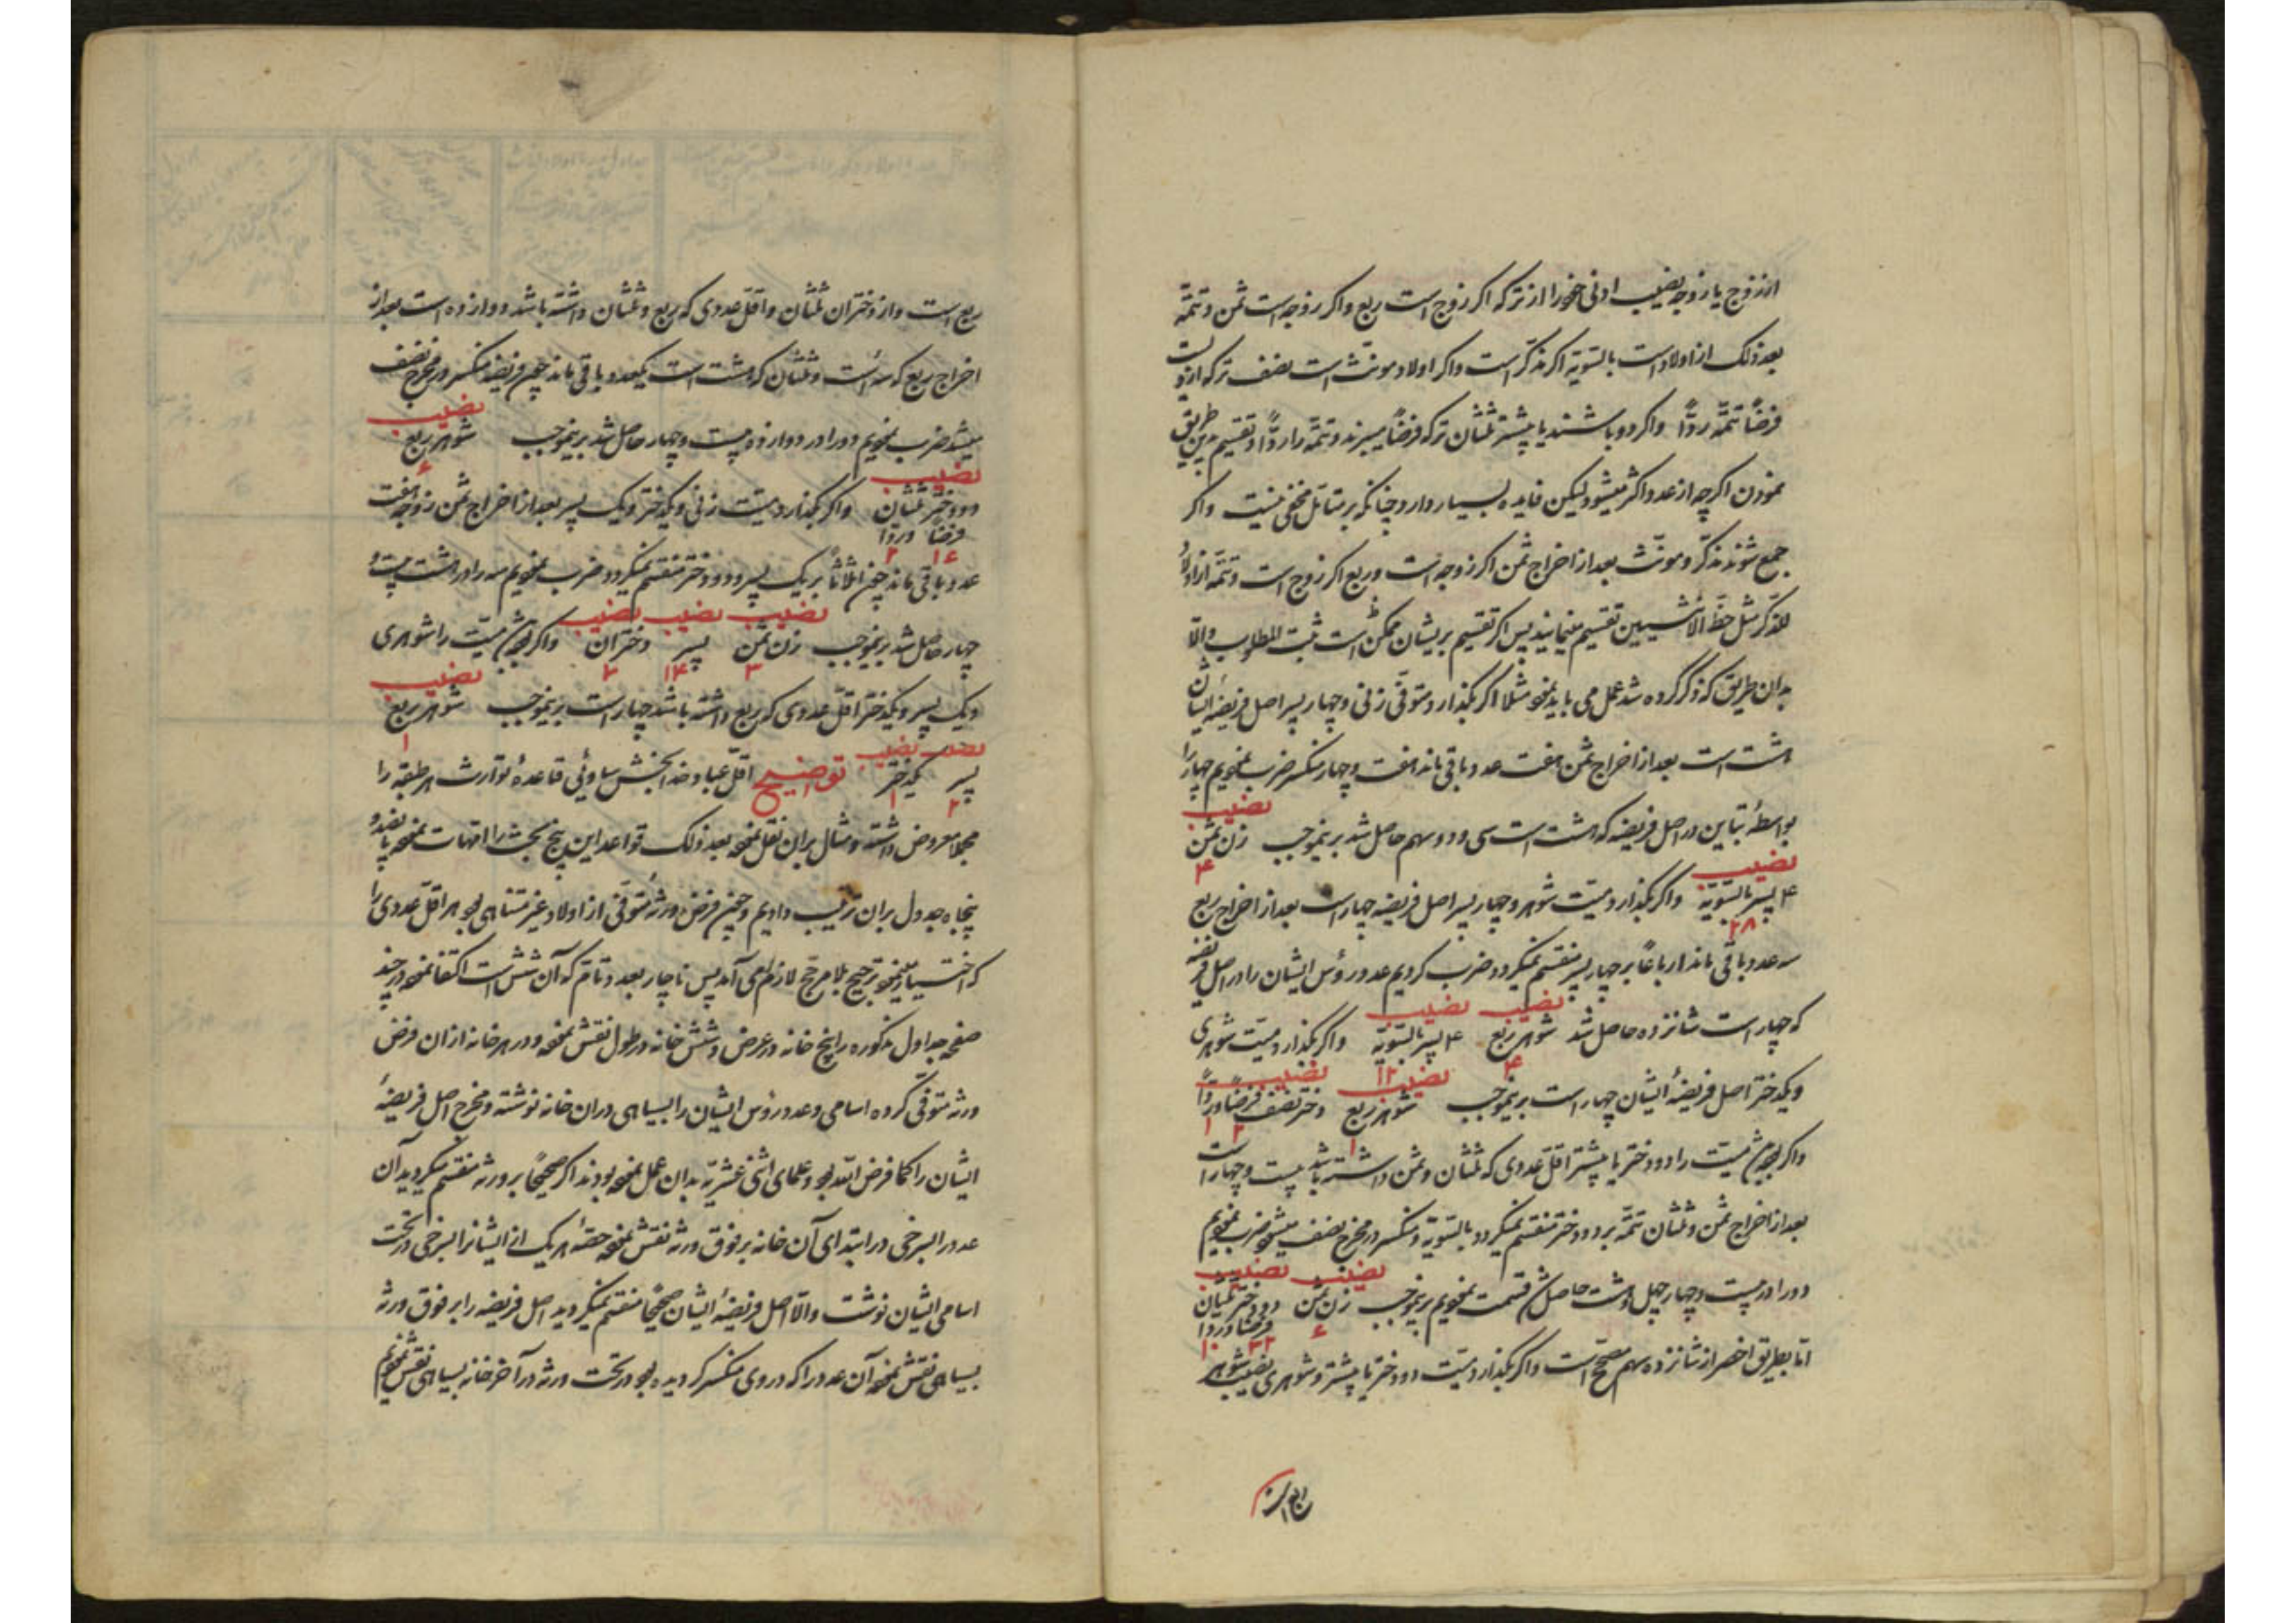 از زوج یا زوجه نصیب ادنی خود را از ترکه اکر زوج است ربع واکر زوجه است ثمن و تتمّه
بعد ذلک از اولاد است بالتسویه اکر مذکّر است واکر اولاد مونّث است نصف ترکه از و
فرضًا تتمّه ردًّا واکر دو باشند یا بیشتر ثلثان ترکه فرضًا میبرند و تتمّه را ردًّا و تقسیم بدین طریق
نمودن اکرچه از عدد اکثر میشود لیکن فایده بسیار دارد چنانکه بر متامّل مخفی نیست واکر
جمع شوند مذکّر و مونّث بعد از اخراج ثمن اکر زوجه است و ربع اکر زوج است و تتمّه از اولاد
للذّکر مثل حظّ الانثیین تقسیم مینمایند پس اکر تقسیم بریشان ممکن است ثبت المطلوب والّا
بدان طریق که ذکر کرده شد عمل می باید نمود مثلا اکر بکذارد متوفّی زنی و چهار پسر اصل فریضهٔ ایشان
هشت است بعد از اخراج ثمن هفت عدد باقی ماند هفت و چهار منکسر ضرب نمودیم چهار را
نصیب
بواسطهٔ تباین در اصل فریضه که هشت است سی و دو سهم حاصل شد برینموجب زن ثمن
۴
نصیب
۴ پسر بالتسویّه واکر بکذارد میّت شوهر و چهار پسر اصل فریضه چهار است بعد از اخراج ربع
۲۸
سه عدد باقی ماند ارباعًا بر چهار پسر منقسم نمیکردد ضرب کردیم عدد رؤس ایشان را در اصل فریضه
نصیب نصیب
که چهار است شانزده حاصل شد شوهر ربع ۴ پسر بالتسویّه واکر بکذارد میّت شوهری
۴ ۱۲
نصیب نصیب
و یکدختر اصل فریضهٔ ایشان چهار است برینموجب شوهر ربع دختر نصف فرضًا وردًّا
۱ ۲ ۱
میّت را دو دختر یا بیشتر اقلّ عددی که ثلثان و ثمن داشته باشد بیست و چهار است
بعد از اخراج ثمن و ثلثان تتمّه بر دو دختر منقسم نمیکردد بالتسویّه و منکسر در مخرج نصف میشود ضرب نمودیم
نصیب نصیب
دو را در بیست و چهار چهل و هشت حاصل قسمت نمودیم برینموجب زن ثمن دو دختر ثلثان
فرضا وردا
۶ ۳۲ ۱۰
امّا بطریق اخصر از شانزده سهم صحیح است واکر بکذارد میّت دو دختر یا بیشتر و شوهری نصیب شوهر
ربع است
ربع است و از دختران ثلثان و اقلّ عددی که ربع و ثلثان داشته باشد دوازده است بعد از
اخراج ربع که سه است و ثلثان که هشت است یکعدد باقی ماند چون فریضه منکسر در مخرج نصف
نصیب
میشد ضرب نمودیم دو را در دوازده بیست و چهار حاصل شد برینموجب شوهر ربع
۶
نصیب
دو دختر ثلثان واکر بکذارد میّت زنی و یکدختر و یک پسر بعد از اخراج ثمن زوجه هفت
فرضًا وردا
۱۶ ۲
عدد باقی ماند چون اثلاثًا بر یک پسر و دختر منقسم نمیکردد ضرب نمودیم سه را در هشت بیست و
نصیب نصیب نصیب
چهار حاصل شد برینموجب زن ثمن پسر دختران واکر میّت را شوهری
۳ ۱۴ ۷
نصیب
و یک پسر و یکدختر اقلّ عددی که ربع داشته باشد چهار است برینموجب شوهر ربع
۱
نصیب نصیب
پسر یکدختر توضیح اقلّ عباد خدابخش ساوئی قاعدهٔ توارث هر طبقه را
۲ ۱
مجملا معروض داشته و مثال بران نقل نموده بعد ذلک قواعد این پنج مبحث را
پنجاه جدول بران ترتیب دادیم و چون فرض ورثهٔ متوفّی از اولاد غیر متناهی بود هر اقلّ عددی را
که اختیار مینمود ترجیح بلا مرجّح لازم می آمد پس ناچار بعدد تامّ که آن شش است اکتفا نموده در چند
صفحه جداول مذکوره را پنج خانه در عرض و شش خانه در طول نقش نموده و در هر خانه ازان فرض
ورثه متوفّی کرده اسامی و عدد رؤس ایشان را بسیاهی دران خانه نوشته و مخرج اصل فریضهٔ
ایشان را کما فرض اللّه بود و علمای اثنی عشریّه بدان عمل نموده بودند اکر صحیحًا بر ورثه منقسم میکردید آن
عدد را بسرخی در ابتدای آن خانه بر فوق ورثه نقش نموده حصّهٔ هر یک از ایشانرا بسرخی در تحت
اسامی ایشان نوشت والّا اصل فریضهٔ ایشان صحیحًا منقسم نمیکردید اصل فریضه را بر فوق ورثه
بسیاهی نقش نموده آن عدد را که در وی منکسر کردیده بود در تحت ورثه در آخر خانه بسیاهی نقش نمودیم